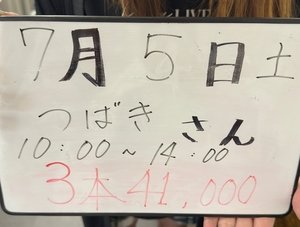 LIVE
7月5日土
つばきさん
10:00~14:00
3本41,000